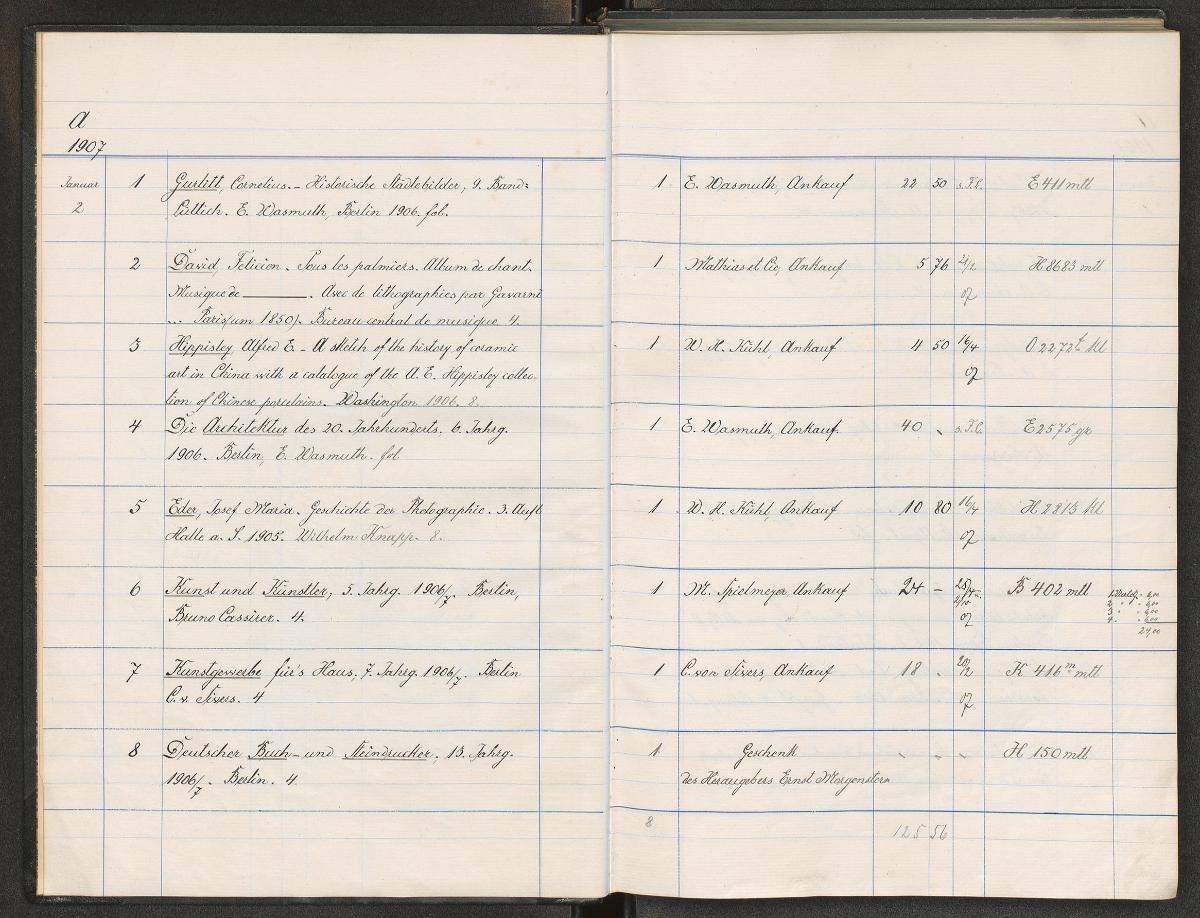 A
1907
Januar 1 Gurlitt, Cornelius. – Historische Städtebilder, 9. Band: 1 E. Wasmuth, Ankauf 22 50 s. F.C. E 411 mtl
2 Lüttich. E. Wasmuth, Berlin 1906. fol.
2 David, Felicien. Sous les palmiers. Album de chant. 1 Mathias et Cie, Ankauf 5 76 H 8683 mtl
Musique de ———. Avec de lithographies par Gavarni 07
... Paris (um 1850). Bureau central de musique. 4.
3 Hippisley, Alfred E. – A sketch of the history of ceramic 1 W. H. Kühl, Ankauf 4 50 16/4 O 2272t kl
art in China with a catalogue of the A. E. Hippisley collec- 07
tion of Chinese porcelains. Washington 1906. 8.
4 Die Architektur des 20. Jahrhunderts. 6. Jahrg. 1 E. Wasmuth, Ankauf. 40 - s. F.C. E 2575 gr
1906. Berlin, E. Wasmuth. fol.
5 Eder, Josef Maria. Geschichte der Photographie. 3. Aufl. 1 W. H. Kühl, Ankauf 10 80 16/4 H 2813 kl
Halle a. S. 1905. Wilhelm Knapp. 8. 07
6 Kunst und Künstler, 5. Jahrg. 1906/7. Berlin, 1 M. Spielmeyer, Ankauf 24 – B 402 mtl
Bruno Cassirer. 4. 07
24,00
7 Kunstgewerbe für's Haus, 7. Jahrg. 1906/7. Berlin 1 C. von Sivers, Ankauf 18 - K 416m mtl
C. v. Sivers. 4 07
8 Deutscher Buch- und Steindrucker, 13. Jahrg. 1 Geschenk - - - H 150 mtl
1906/7. Berlin. 4. des Heraugebers Ernst Morgenstern
8 125 56